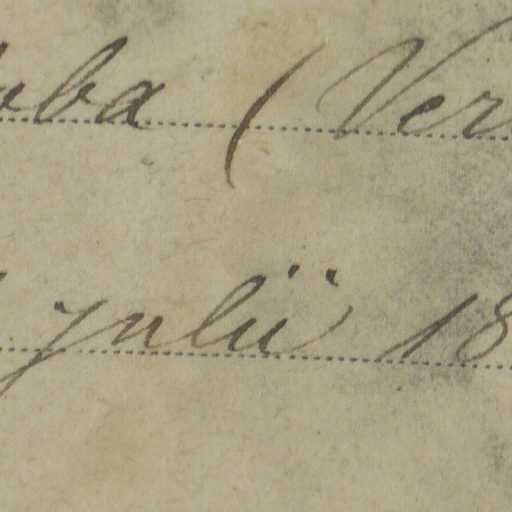 oba (Ver
julii 18